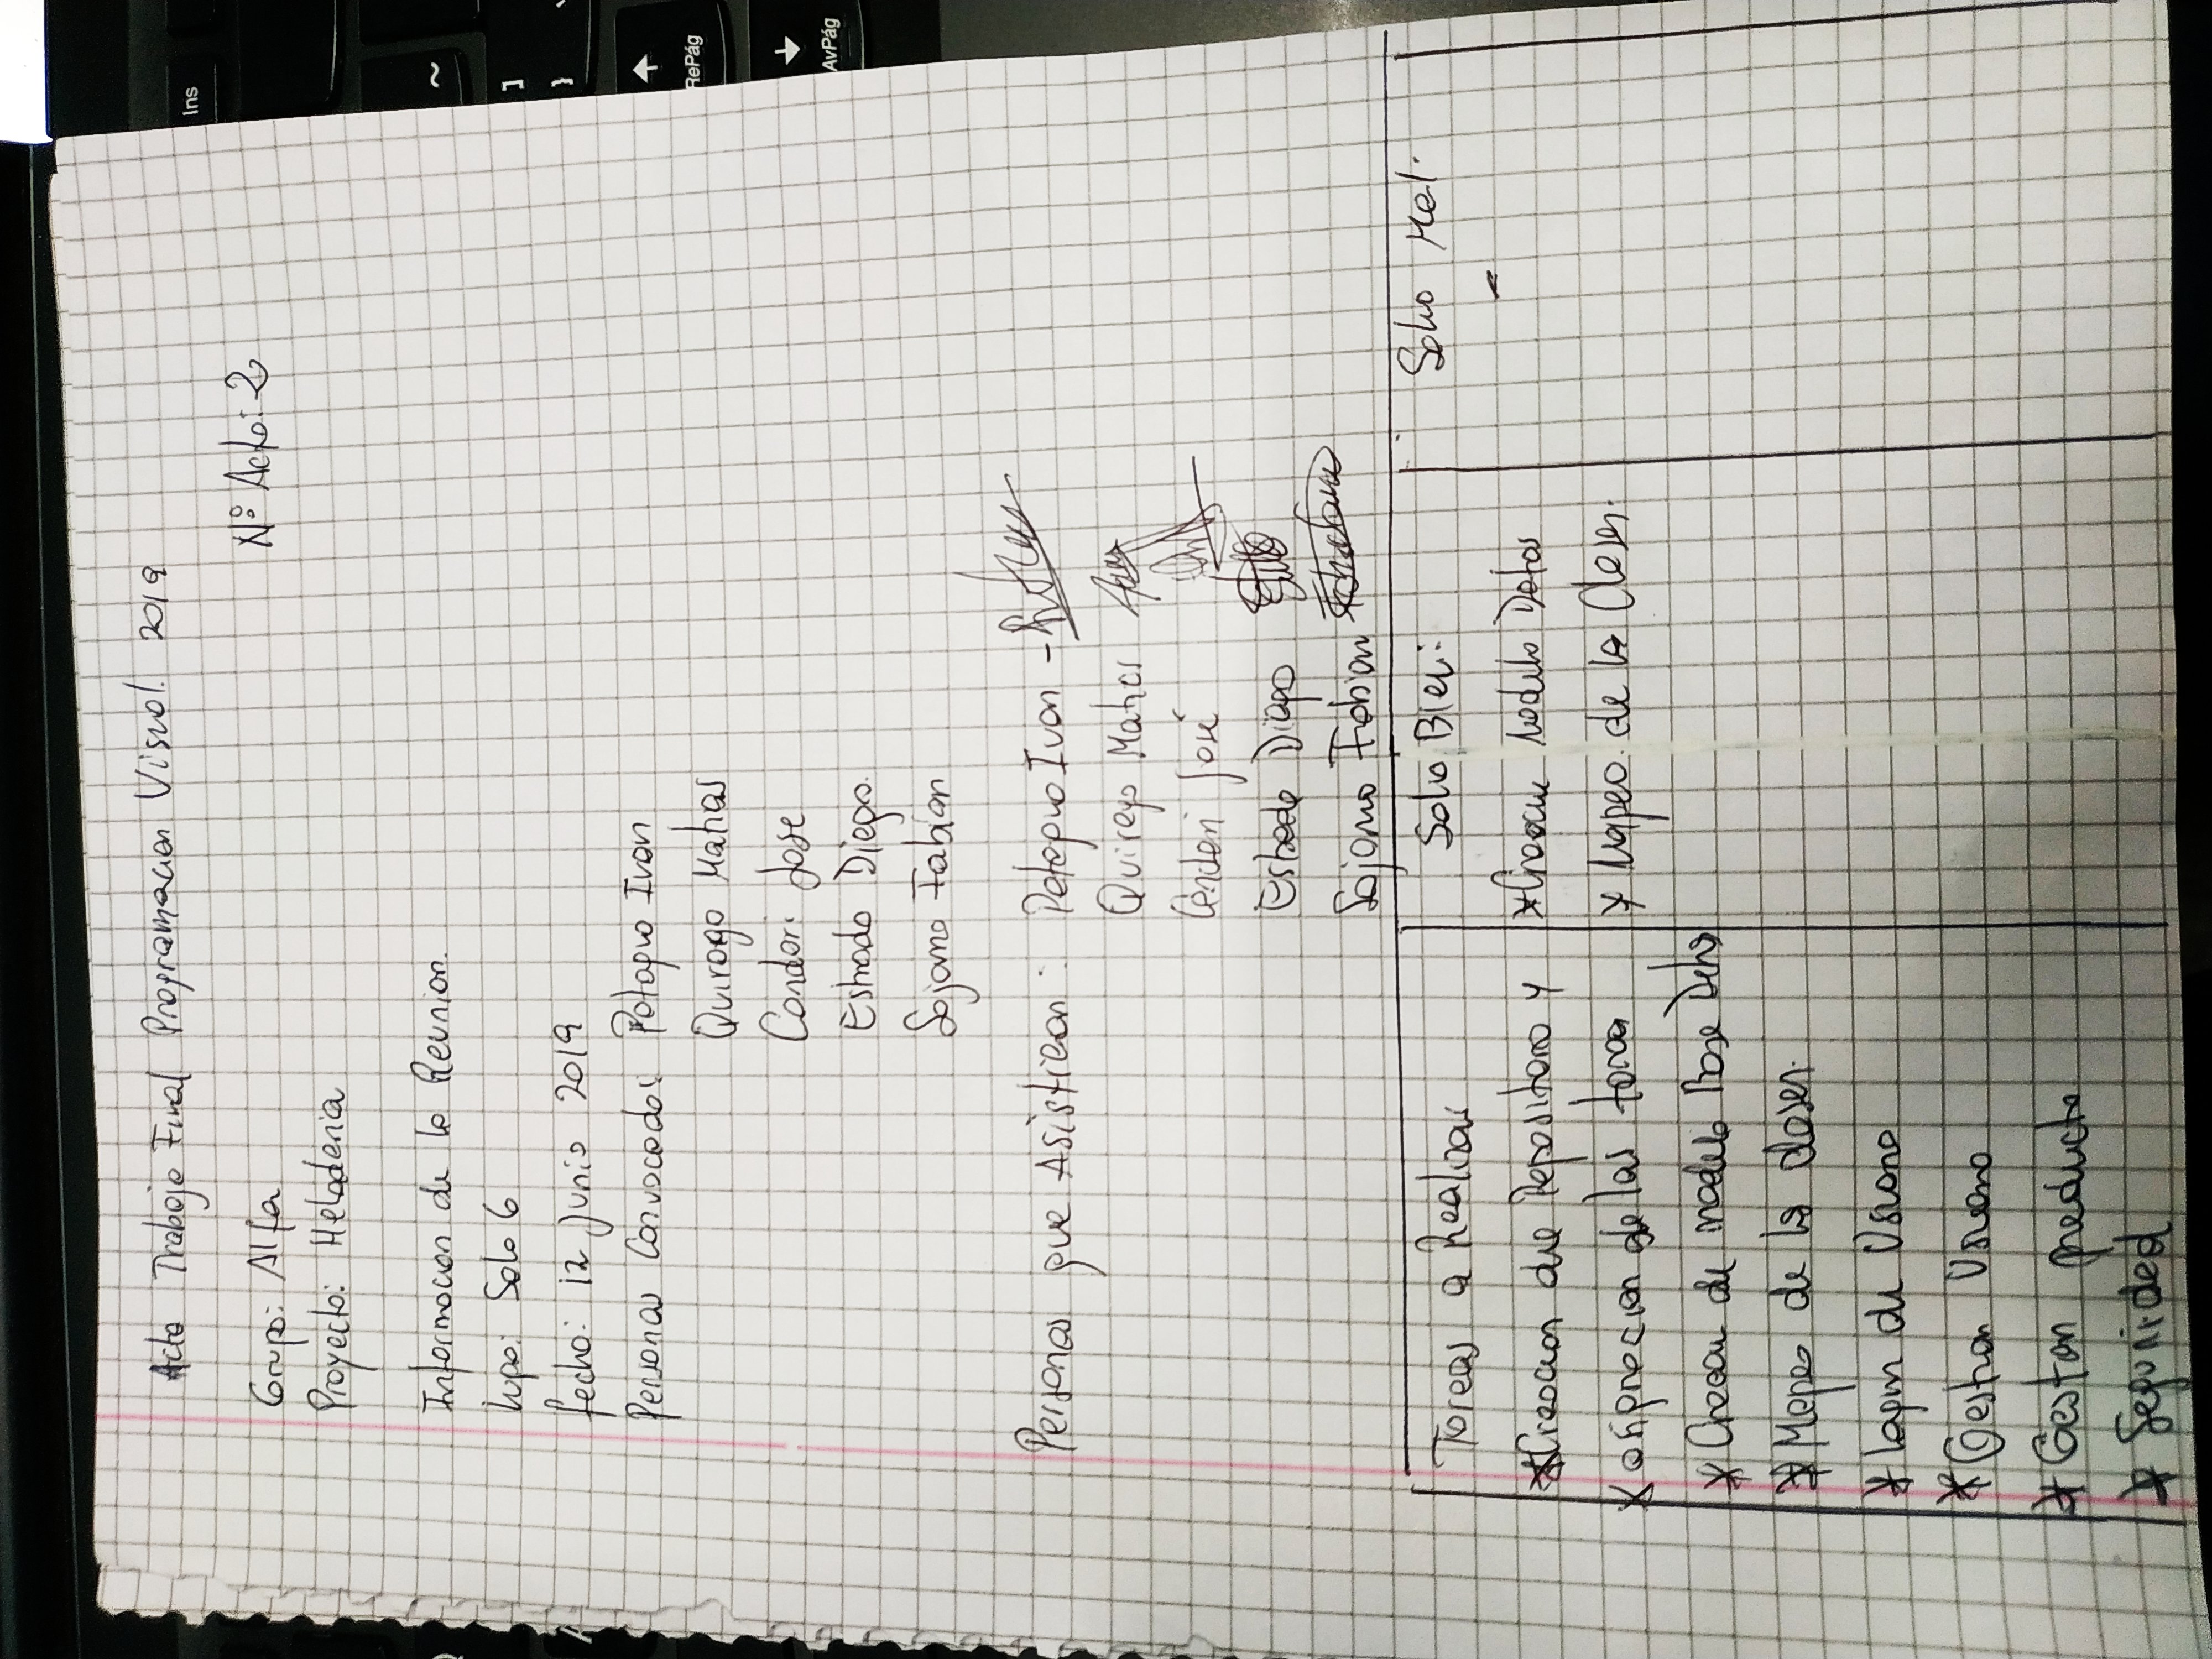 Acta Trabajo Final Programacion Visual. 2019
N° Acta: 2
Grupo: Alfa
Proyecto: Heladeria
Informacion de la Reunion.
Lugar: Sala 6
fecha: 12 Junio 2019
Personas Convocadas: Potapio Ivan
Quiroga Matias
Condori Jose
Estrada Diego.
Sajama Fabian
Personas que Asistieon: Potapio Ivan -
Quiroga Matias
Condori José
Estrada Diego
Sajama Fabian
Tareas a Realizar
Salio Bien:
Salio Mal.
* Creacion de Repositorio y
* Creacion Modelo Datos
-
* asignacion de las tarea
* Mapeo de la Clases.
* Creacion de modelo Base Datos
* Mapeo de la clases.
* Login de Usuario
* Gestion Usuario
* Gestion producto
* Seguridad
Ins
~
]
}
RePág
AvPág